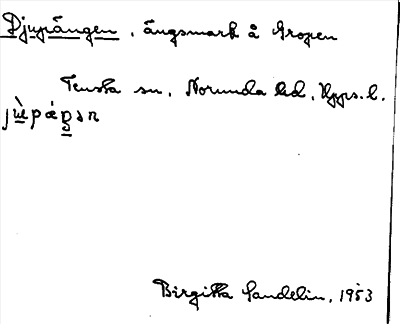 Djupängen, ängsmark å Gropen
Tensta sn, Norunda hd, Upps. l.
Birgitta Sandelin, 1953